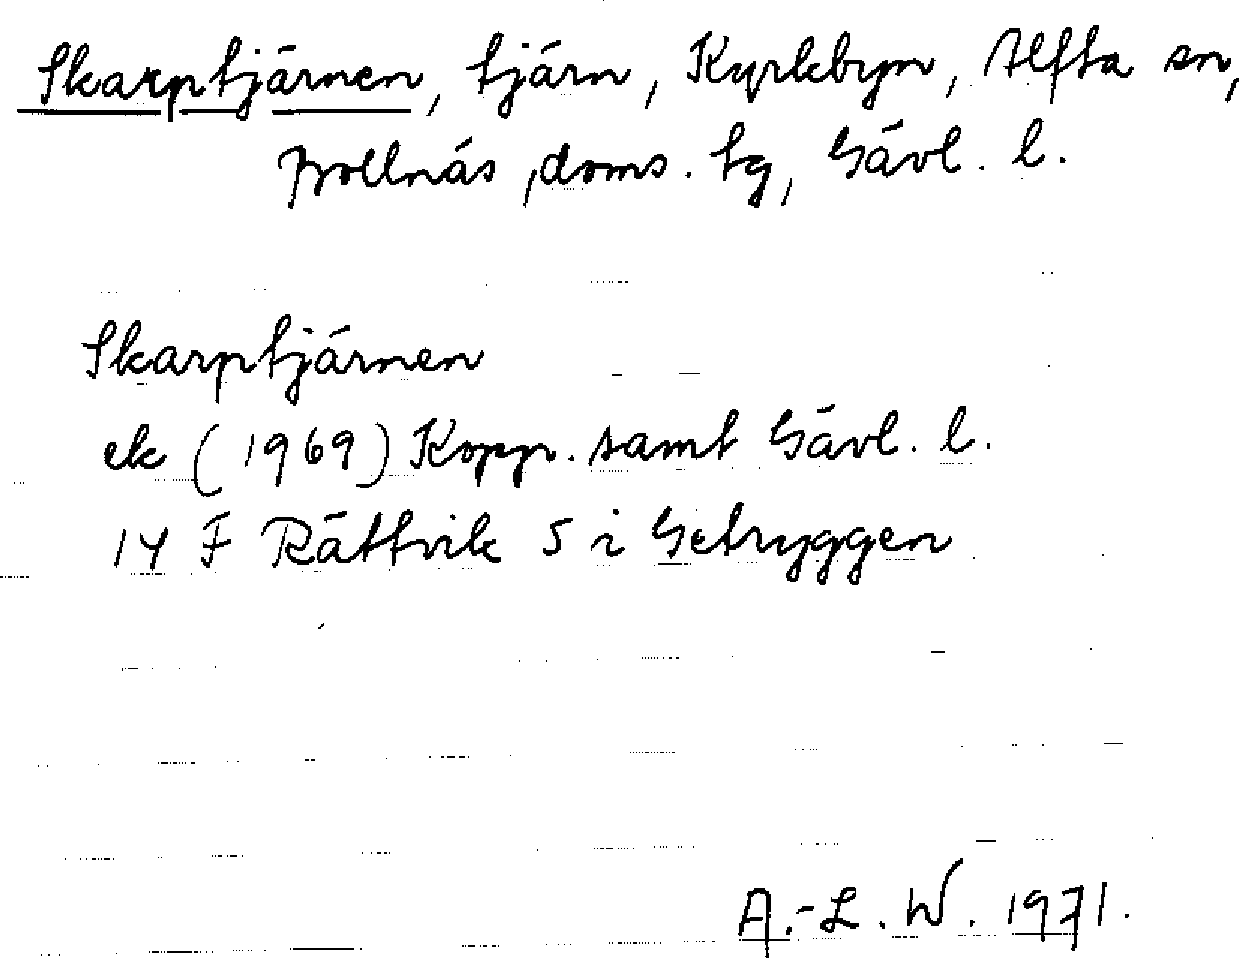 Skarptjärnen, tjärn, Kyrkbyn, Alfta sn,
Bollnäs, doms. tg, Gävl. l.
Skarptjärnen
ek (1969) Kopp. samt Gävl. l.
14 F Rättvik S i Getryggen
A.-L. W. 1971.